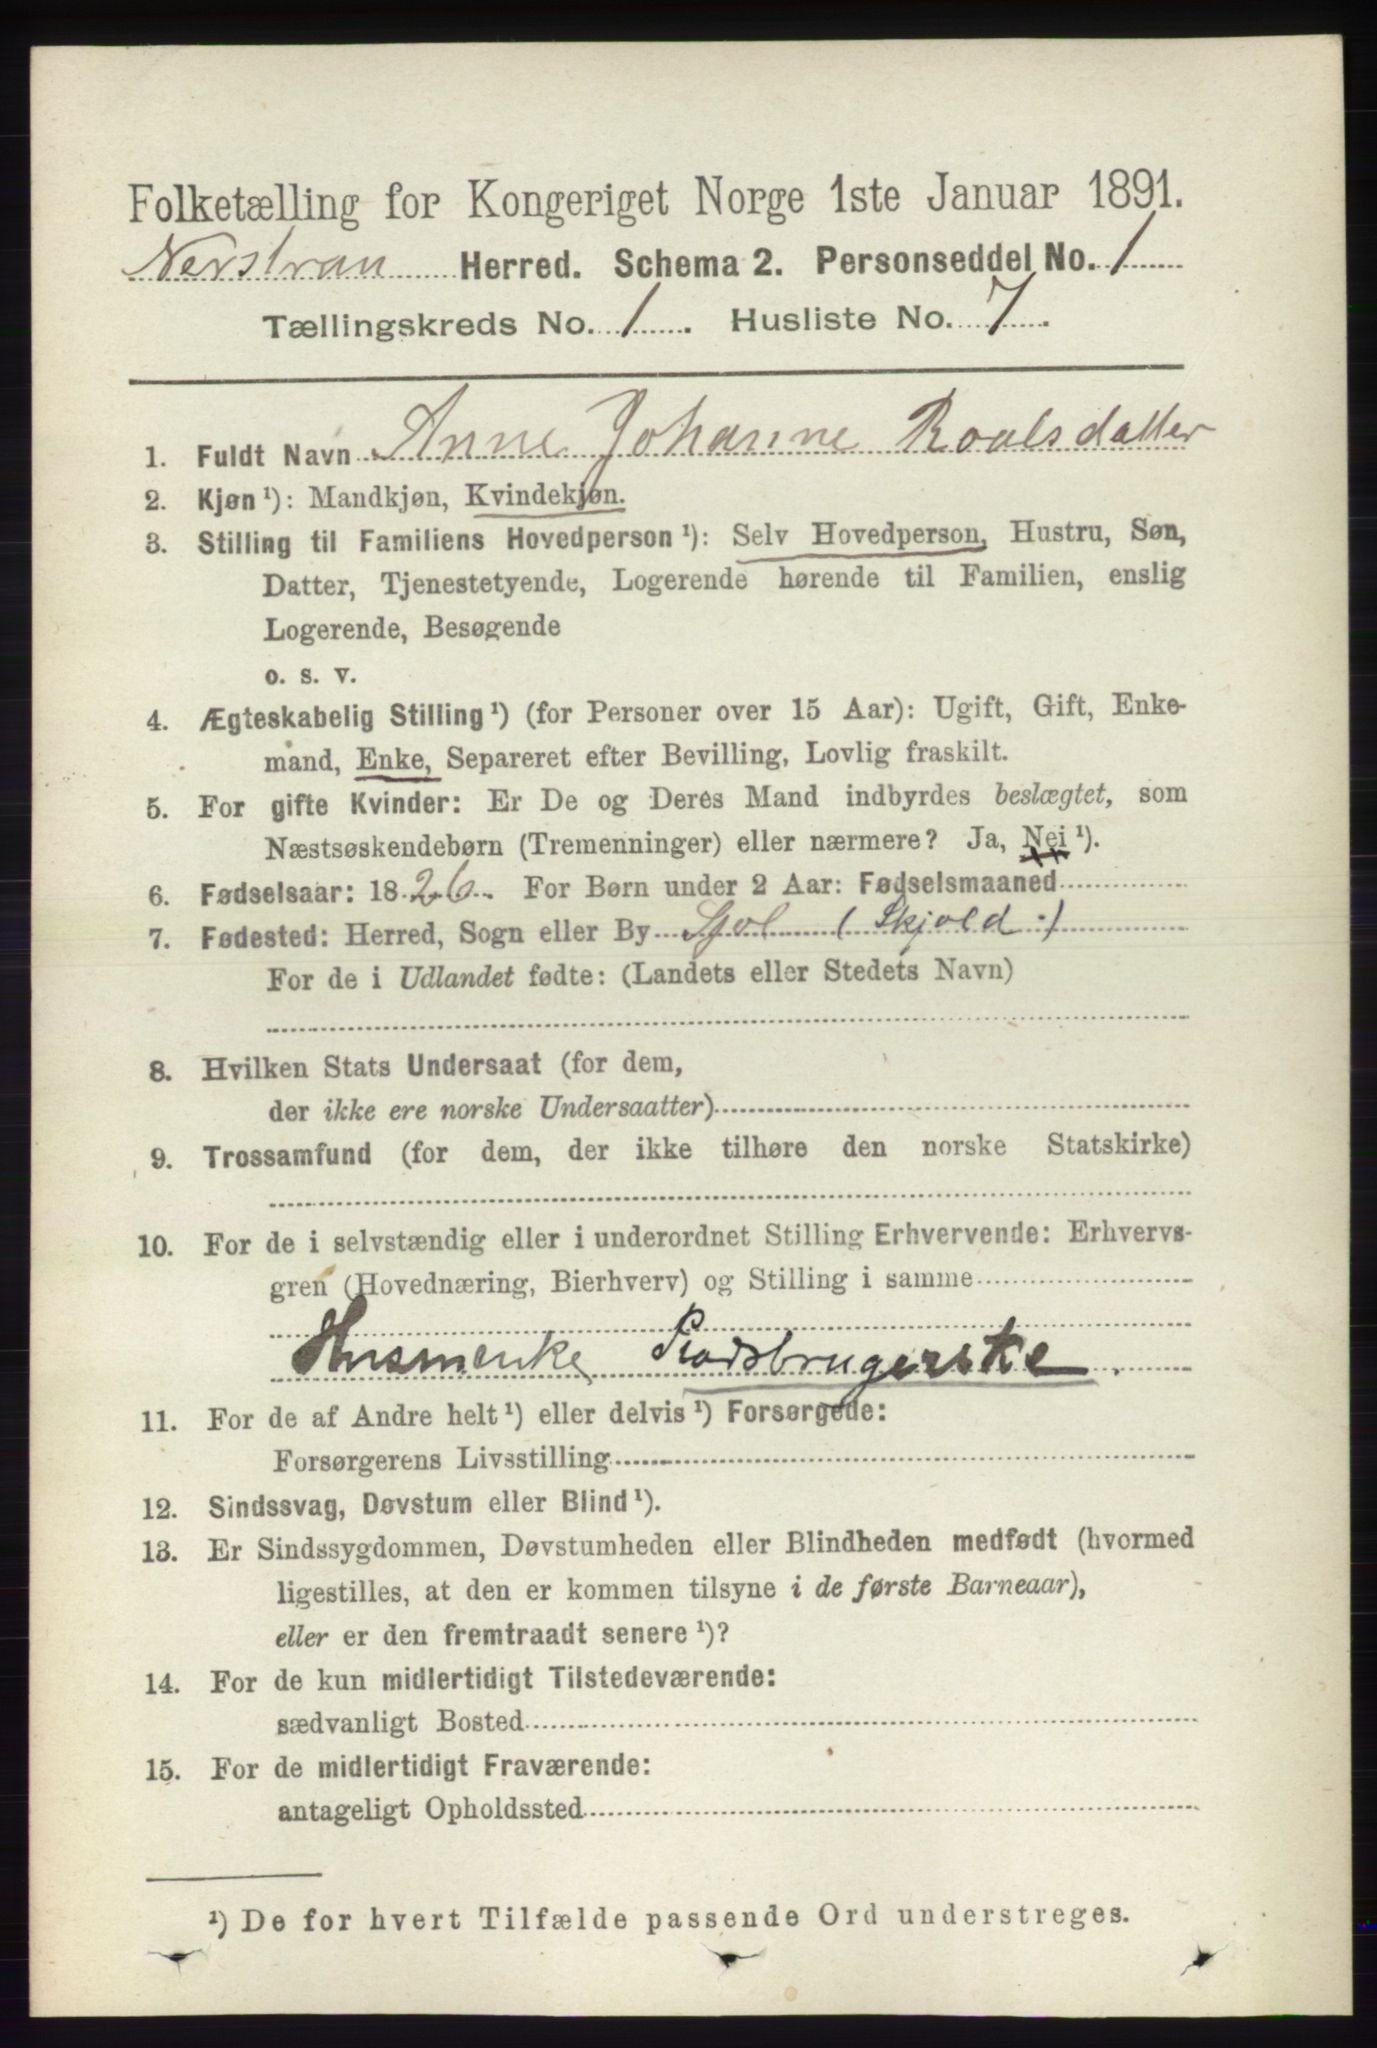 Folketælling for Kongeriget Norge 1ste Januar 1891.
Nerstran Herred. Schema 2. Personseddel No. 1
Tællingskreds No. 1. Husliste No. 7.
1. Fuldt Navn Anne Johanne Roalsdatter
2. Kjøn ¹): Mandkjøn, Kvindekjøn.
3. Stilling til Familiens Hovedperson ¹): Selv Hovedperson, Hustru, Søn,
Datter, Tjenestetyende, Logerende hørende til Familien, enslig
Logerende, Besøgende
o. s. v.
4. Ægteskabelig Stilling ¹) (for Personer over 15 Aar): Ugift, Gift, Enke-
mand, Enke, Separeret efter Bevilling, Lovlig fraskilt.
5. For gifte Kvinder: Er De og Deres Mand indbyrdes beslægtet, som
Næstsøskendebørn (Tremenninger) eller nærmere? Ja, Nei ¹).
6. Fødselsaar: 1826. For Børn under 2 Aar: Fødselsmaaned
7. Fødested: Herred, Sogn eller By Sjol (Skjold.)
For de i Udlandet fødte: (Landets eller Stedets Navn)
8. Hvilken Stats Undersaat (for dem,
der ikke ere norske Undersaatter)
9. Trossamfund (for dem, der ikke tilhøre den norske Statskirke)
10. For de i selvstændig eller i underordnet Stilling Erhvervende: Erhvervs-
gren (Hovednæring, Bierhverv) og Stilling i samme
Husmenke Pladsbrugerske.
11. For de af Andre helt ¹) eller delvis ¹) Forsørgede:
Forsørgerens Livsstilling
12. Sindssvag, Døvstum eller Blind ¹).
13. Er Sindssygdommen, Døvstumheden eller Blindheden medfødt (hvormed
ligestilles, at den er kommen tilsyne i de første Barneaar),
eller er den fremtraadt senere ¹)?
14. For de kun midlertidigt Tilstedeværende:
sædvanligt Bosted
15. For de midlertidigt Fraværende:
antageligt Opholdssted
¹) De for hvert Tilfælde passende Ord understreges.